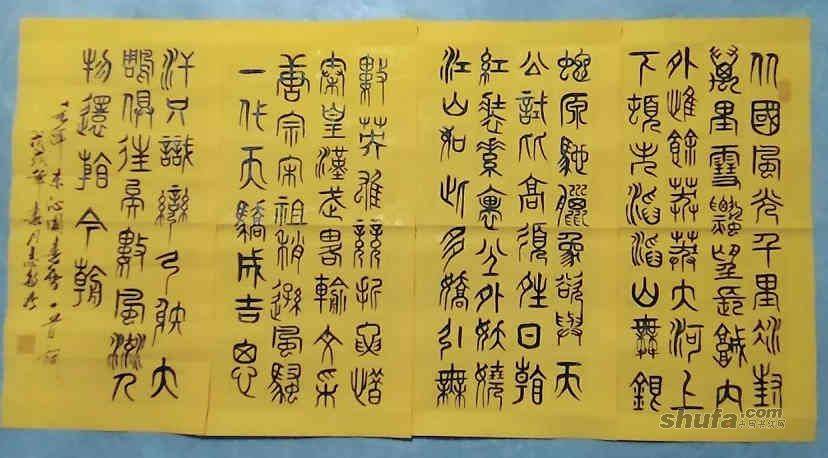 北國風光千里冰封
萬里雪飄望長城内
外惟餘莽莽大河上
下頓失滔滔山舞銀
蛇原馳臘象欲與天
公試比高須晴日看
紅裝素裹分外妖嬈
江山如此多嬌引無
數英雄競折腰惜
秦皇漢武略輸文采
唐宗宋祖稍遜風騷
一代天驕成吉思
汗只識彎弓射大
鵰俱往矣數風流人
物還看今朝
毛澤東沁園春雪一首
戊戌年春月
shufa.com